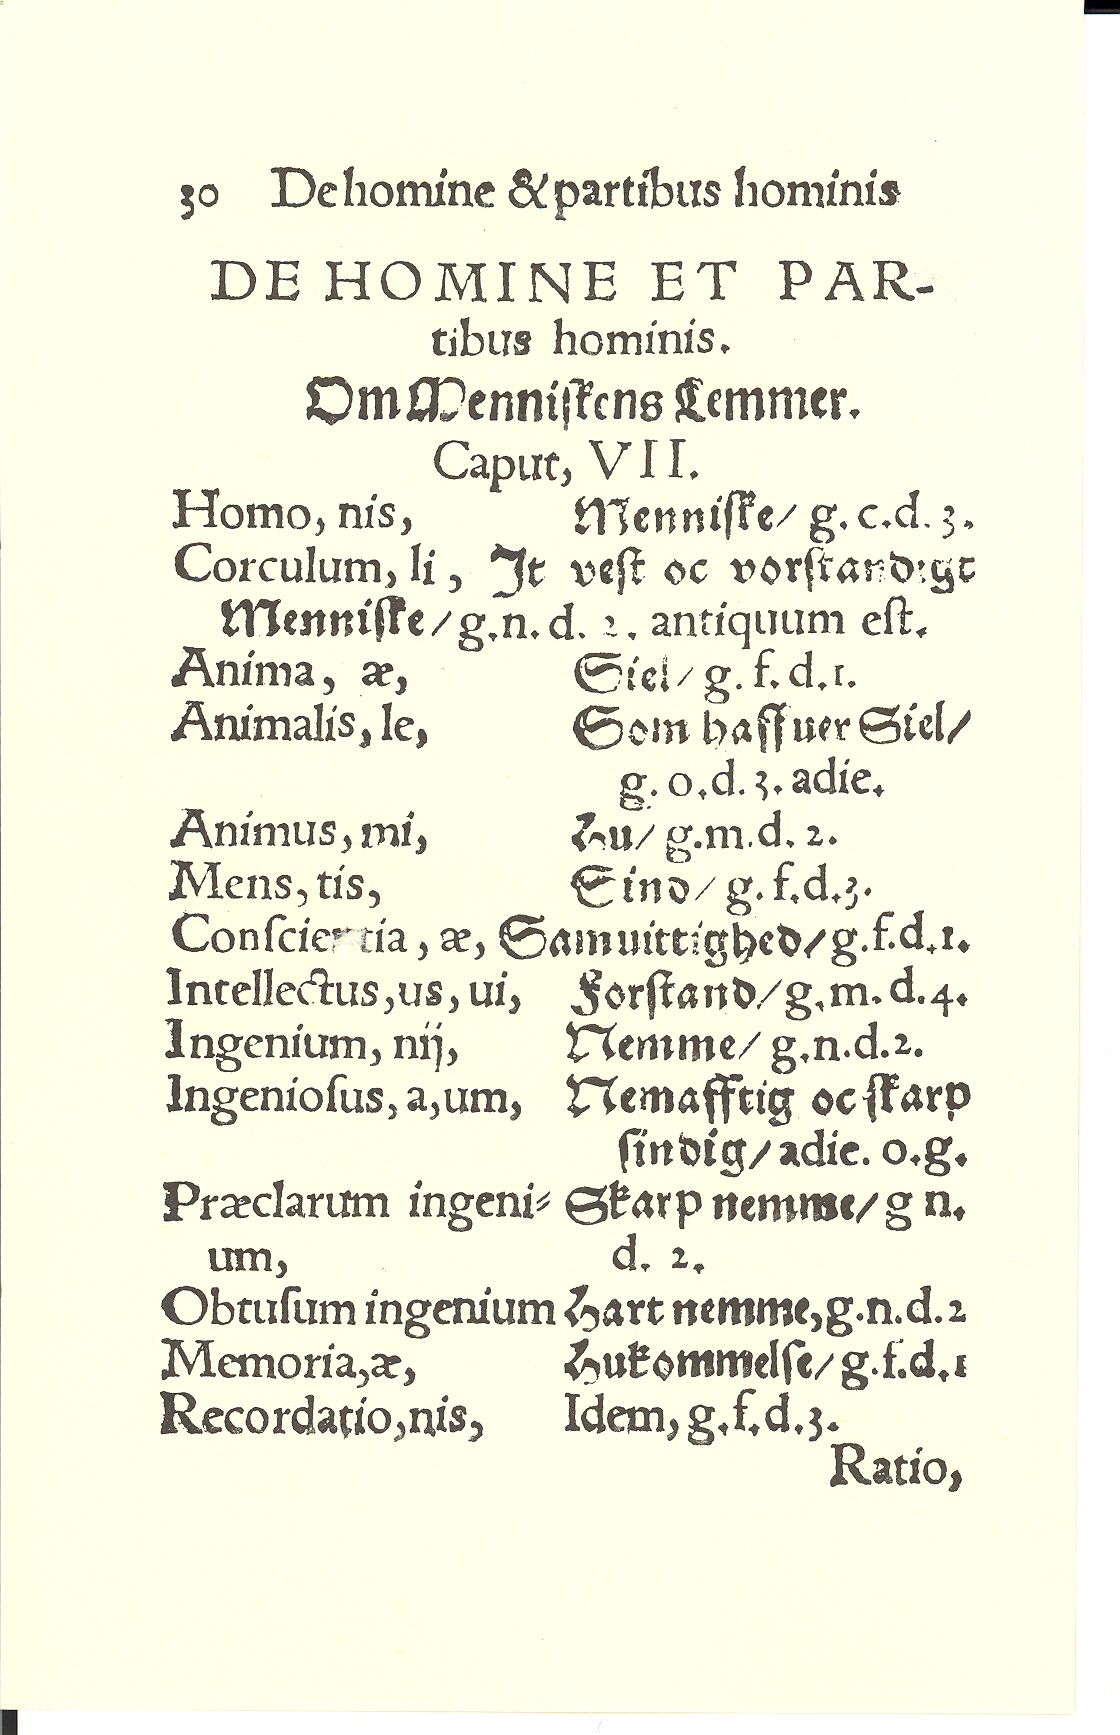 30 De homine & partibus hominis
DE HOMINE ET PAR-
tibus hominis.
Om Menniſkens Lemmer.
Caput, VII.
Homo, nis, Menniſke/ g. c.d. 3.
Corculum, li, It veſt oc vorſtandigt
Menniſke/ g.n. d. 2. antiquum eſt.
Anima, æ, Siel/ g. f. d.1.
Animalis, le, Som haffuer Siel/
g. o.d. 3. adie.
Animus, mi, Hu/ g.m.d. 2.
Mens, tis, Sind/ g. f.d.3.
Conſcientia, æ, Samuittighed/ g.f.d.1.
Intellectus,us, ui, Forſtand/ g.m. d.4.
Ingenium, nij, Nemme/ g.n.d.2.
Ingenioſus, a,um, Nemafftig oc ſkarp
ſindig/ adie. o.g.
Præclarum ingeni⸗ Skarp nemme/ g n.
um, d. 2.
Obtuſum ingenium Hart nemme,g.n.d.2
Memoria,æ, Hukommelſe/ g.f.d.1
Recordatio,nis, Idem, g.f.d.3.
Ratio,